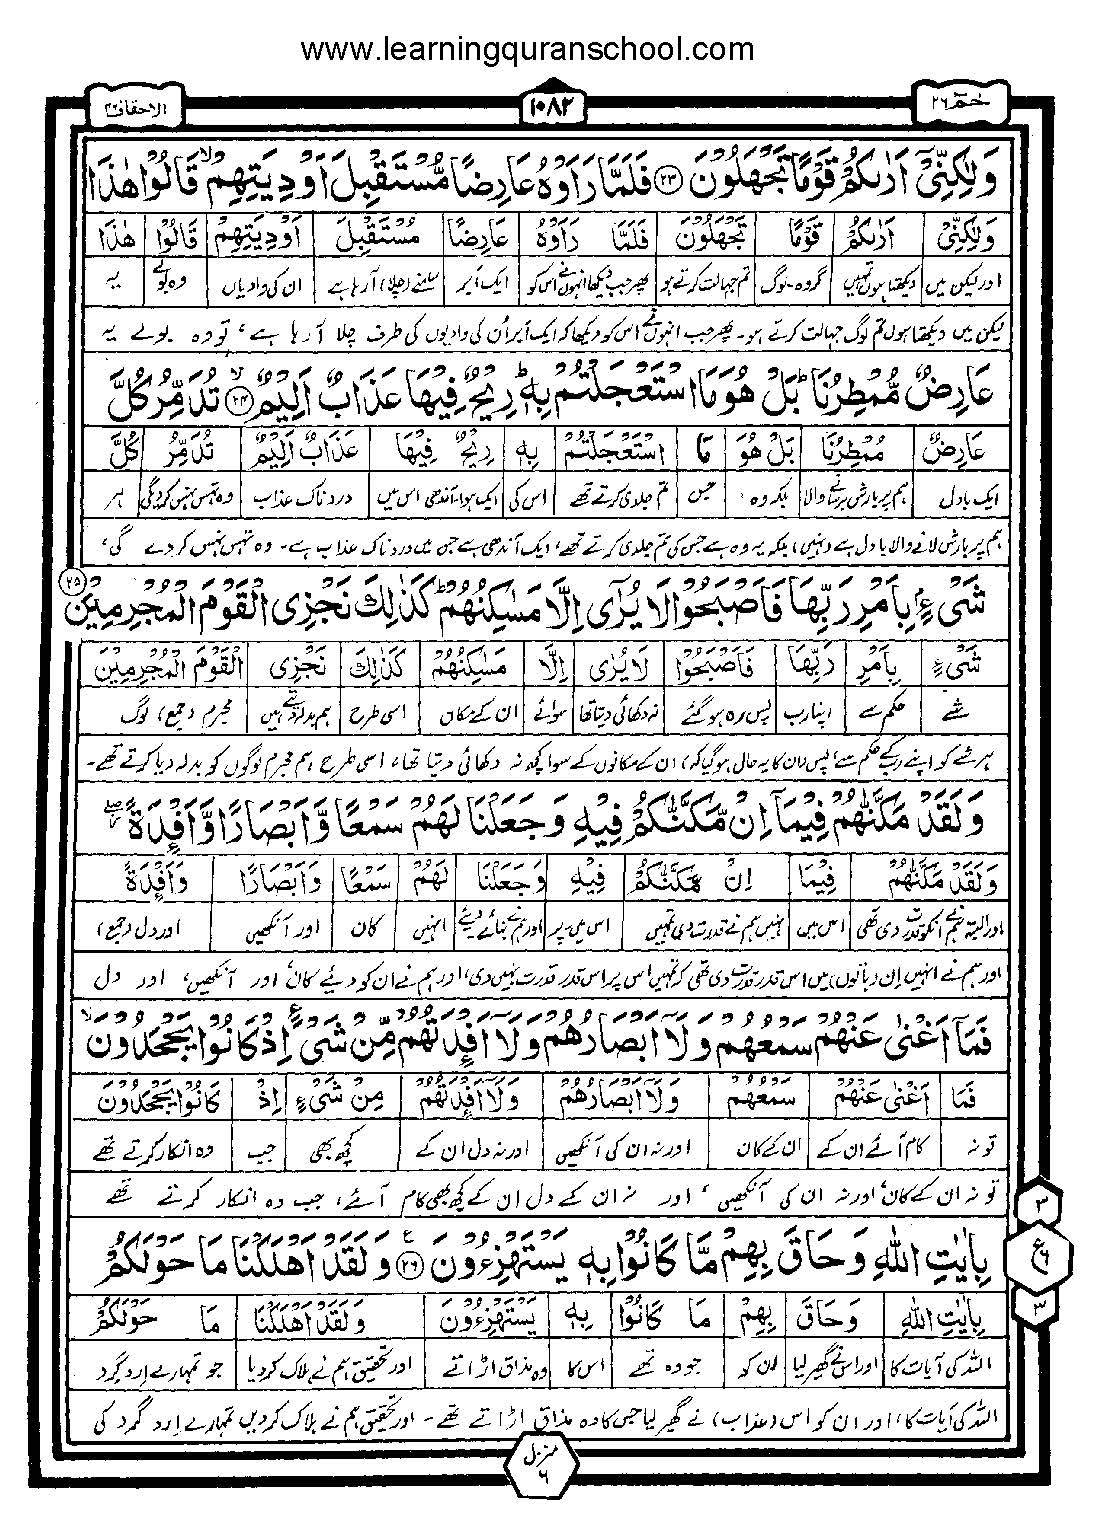 www.learningquranschool.com
الاحقاف ۴۶
۱۰۸۲
حٰمٓ ۲۶
وَلٰكِنِّیْۤ اَرٰىكُمْ قَوْمًا تَجْهَلُوْنَ ﴿۲۳﴾ فَلَمَّا رَاَوْهُ عَارِضًا مُّسْتَقْبِلَ اَوْدِیَتِهِمْ ۙ قَالُوْا هٰذَا
وَلٰكِنِّیْۤ اَرٰىكُمْ قَوْمًا تَجْهَلُوْنَ فَلَمَّا رَاَوْهُ عَارِضًا مُّسْتَقْبِلَ اَوْدِیَتِهِمْ قَالُوْا هٰذَا
اور لیکن میں دیکھتا ہوں تمہیں گروہ۔لوگ تم جہالت کرتے ہو پھر جب دیکھا انہوں نے اس کو ایک ابر سامنے (چلا) آ رہا ہے ان کی وادیاں وہ بولے یہ
لیکن میں دیکھتا ہوں تم لوگ جہالت کرتے ہو۔ پھر جب انہوں نے اس کو دیکھا کہ ایک ابر اُن کی وادیوں کی طرف چلا آ رہا ہے، تو وہ بولے یہ
عَارِضٌ مُّمْطِرُنَا ؕ بَلْ هُوَ مَا اسْتَعْجَلْتُمْ بِهٖ ؕ رِیْحٌ فِیْهَا عَذَابٌ اَلِیْمٌ ۙ ﴿۲۴﴾ تُدَمِّرُ كُلَّ
عَارِضٌ مُّمْطِرُنَا بَلْ هُوَ مَا اسْتَعْجَلْتُمْ بِهٖ رِیْحٌ فِیْهَا عَذَابٌ اَلِیْمٌ تُدَمِّرُ كُلَّ
ایک بادل ہم پر بارش برسنے والا بلکہ وہ جس تم جلدی کرتے تھے اس کی ایک ہوا۔آندھی اس میں دردناک عذاب وہ تہس نہس کر دیگی ہر
ہم پر بارش لانے والا بادل ہے (نہیں) بلکہ یہ وہ ہے جس کی تم جلدی کرتے تھے، ایک آندھی ہے جس میں دردناک عذاب ہے۔ وہ تہس نہس کر دے گی،
شَیْءٍۭ بِاَمْرِ رَبِّهَا فَاَصْبَحُوْا لَا یُرٰۤى اِلَّا مَسٰكِنُهُمْ ؕ كَذٰلِكَ نَجْزِی الْقَوْمَ الْمُجْرِمِیْنَ ﴿۲۵﴾
شَیْءٍ بِاَمْرِ رَبِّهَا فَاَصْبَحُوْا لَا یُرٰۤى اِلَّا مَسٰكِنُهُمْ كَذٰلِكَ نَجْزِی الْقَوْمَ الْمُجْرِمِیْنَ
شے حکم سے اپنا رب پس رہ ہو گئے نہ دکھائی دیتا تھا سوائے ان کے مکان اسی طرح ہم بدلہ دیتے ہیں مجرم (جمع) لوگ
ہر شے کو اپنے رب کے حکم سے، پس (ان کا یہ حال ہو گیا کہ) ان کے مکانوں کے سوا کچھ نہ دکھائی دیتا تھا، اسی طرح ہم مجرم لوگوں کو بدلہ دیا کرتے تھے۔
وَلَقَدْ مَكَّنّٰهُمْ فِیْمَاۤ اِنْ مَّكَّنّٰكُمْ فِیْهِ وَجَعَلْنَا لَهُمْ سَمْعًا وَّاَبْصَارًا وَّاَفْـِٕدَةً ۖ
وَلَقَدْ مَكَّنّٰهُمْ فِیْمَاۤ اِنْ مَّكَّنّٰكُمْ فِیْهِ وَجَعَلْنَا لَهُمْ سَمْعًا وَاَبْصَارًا وَاَفْـِٕدَةً
اور البتہ ہم نے انکو قدرت دی تھی اس میں نہیں ہم نے قدرت دی تمہیں اس میں۔پر اور ہم نے بنائے۔دیئے انہیں کان اور آنکھیں اور دل (جمع)
اور ہم نے انہیں اِن (باتوں) میں اس قدر قدرت دی تھی کہ تمہیں اس پر اس قدر قدرت نہیں دی، اور ہم نے ان کو دیئے کان اور آنکھیں، اور دل
فَمَاۤ اَغْنٰى عَنْهُمْ سَمْعُهُمْ وَلَاۤ اَبْصَارُهُمْ وَلَاۤ اَفْـِٕدَتُهُمْ مِّنْ شَیْءٍ اِذْ كَانُوْا یَجْحَدُوْنَ ۙ
فَمَاۤ اَغْنٰى عَنْهُمْ سَمْعُهُمْ وَلَاۤ اَبْصَارُهُمْ وَلَاۤ اَفْـِٕدَتُهُمْ مِنْ شَیْءٍ اِذْ كَانُوْا یَجْحَدُوْنَ
تو نہ کام آئے ان کے ان کے کان اور نہ ان کی آنکھیں اور نہ دل ان کے کچھ بھی جب وہ انکار کرتے تھے
تو نہ ان کے کان، اور نہ ان کی آنکھیں، اور نہ ان کے دل ان کے کچھ بھی کام آئے، جب وہ انکار کرتے تھے
بِاٰیٰتِ اللّٰهِ وَحَاقَ بِهِمْ مَّا كَانُوْا بِهٖ یَسْتَهْزِءُوْنَ ﴿۲۶﴾ وَلَقَدْ اَهْلَكْنَا مَا حَوْلَكُمْ
بِاٰیٰتِ اللّٰهِ وَحَاقَ بِهِمْ مَا كَانُوْا بِهٖ یَسْتَهْزِءُوْنَ وَلَقَدْ اَهْلَكْنَا مَا حَوْلَكُمْ
اللہ کی آیات کا اور اس نے گھیر لیا ان کو جو وہ تھے اس کا وہ مذاق اڑاتے اور تحقیق ہم نے ہلاک کر دیا جو تمہارے اِرد گرد
اللہ کی آیات کا، اور ان کو اس (عذاب) نے گھیر لیا جس کا وہ مذاق اڑاتے تھے۔ اور تحقیق ہم نے ہلاک کر دیں تمہارے اِرد گرد کی
۳
ع
۶
۳
منزل
۶